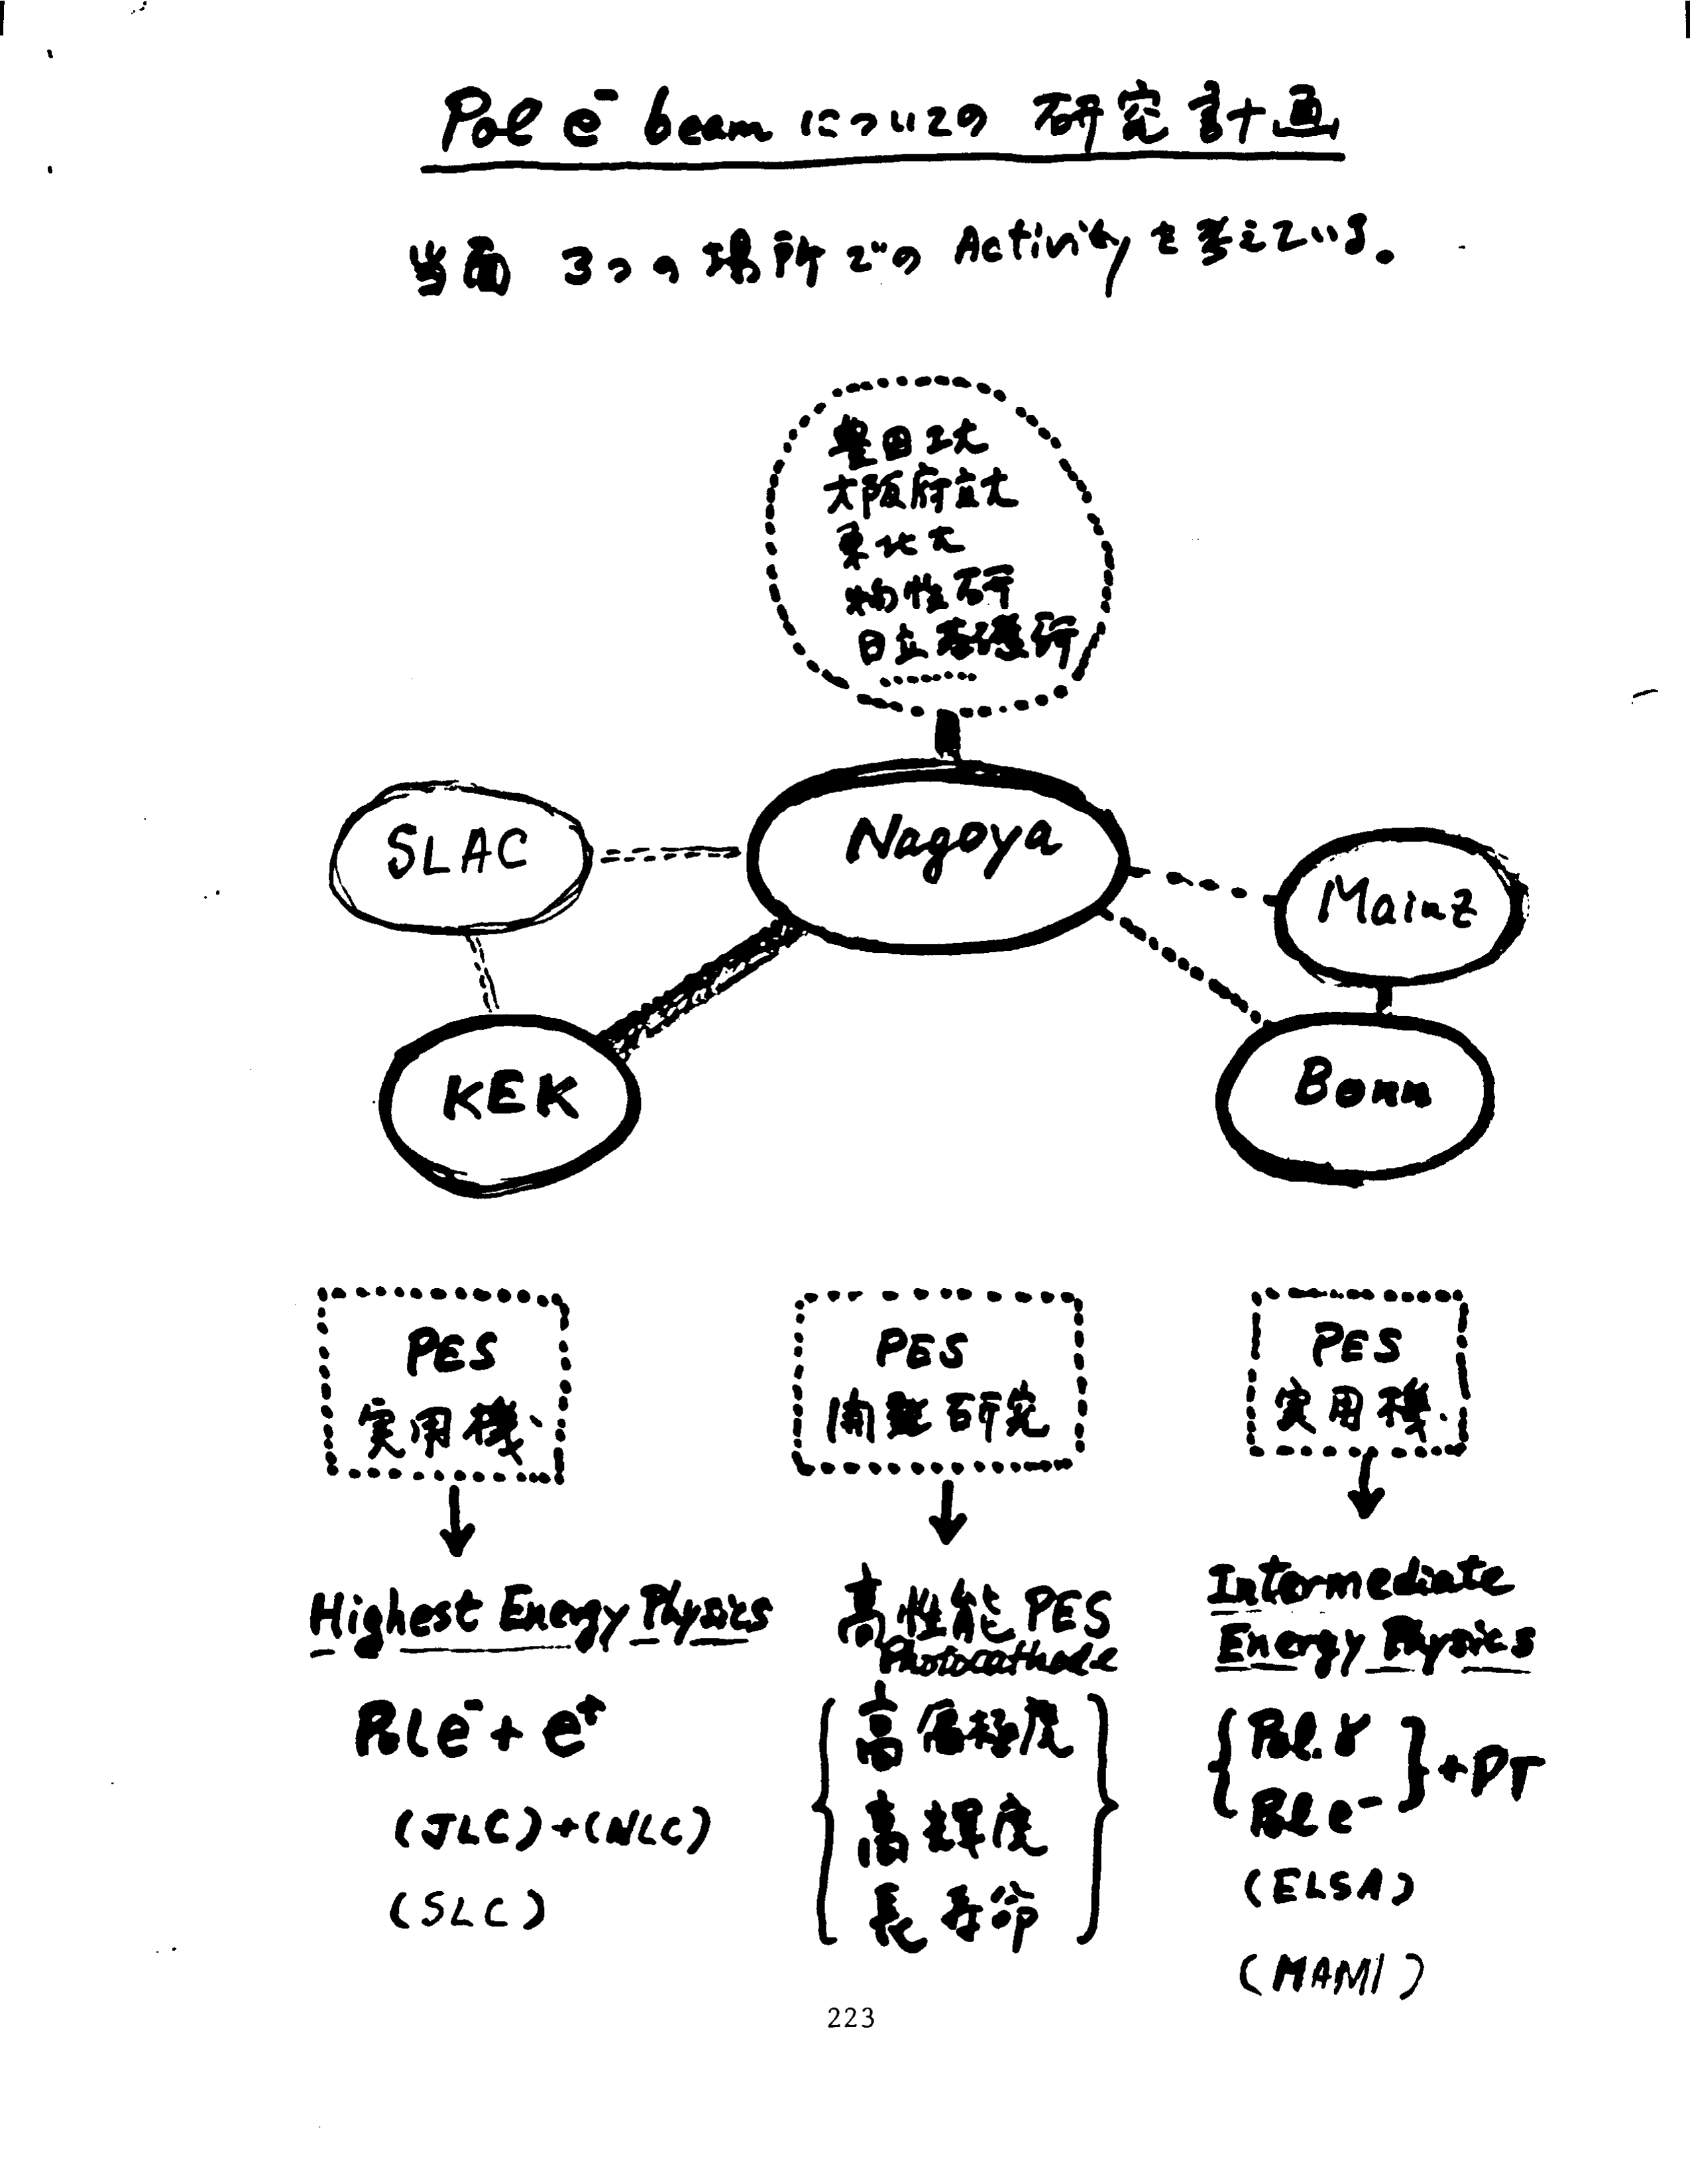 Pol e⁻ beam についての 研究計画
当面 3つの場所での Activityを考えている。
豊田工大
大阪府立大
東北大
物性研
日立基礎研
SLAC
Nagoya
Mainz
KEK
Bonn
PES
実用機
PES
開発研究
PES
実用機
Highest Energy Physics
Pol e⁻ + e⁺
(JLC)+(NLC)
(SLC)
高性能 PES
Photocathode
高偏極度
高輝度
長寿命
Intermediate
Energy Physics
Pol. γ
Pol e⁻
+PT
(ELSA)
(MAMI)
223